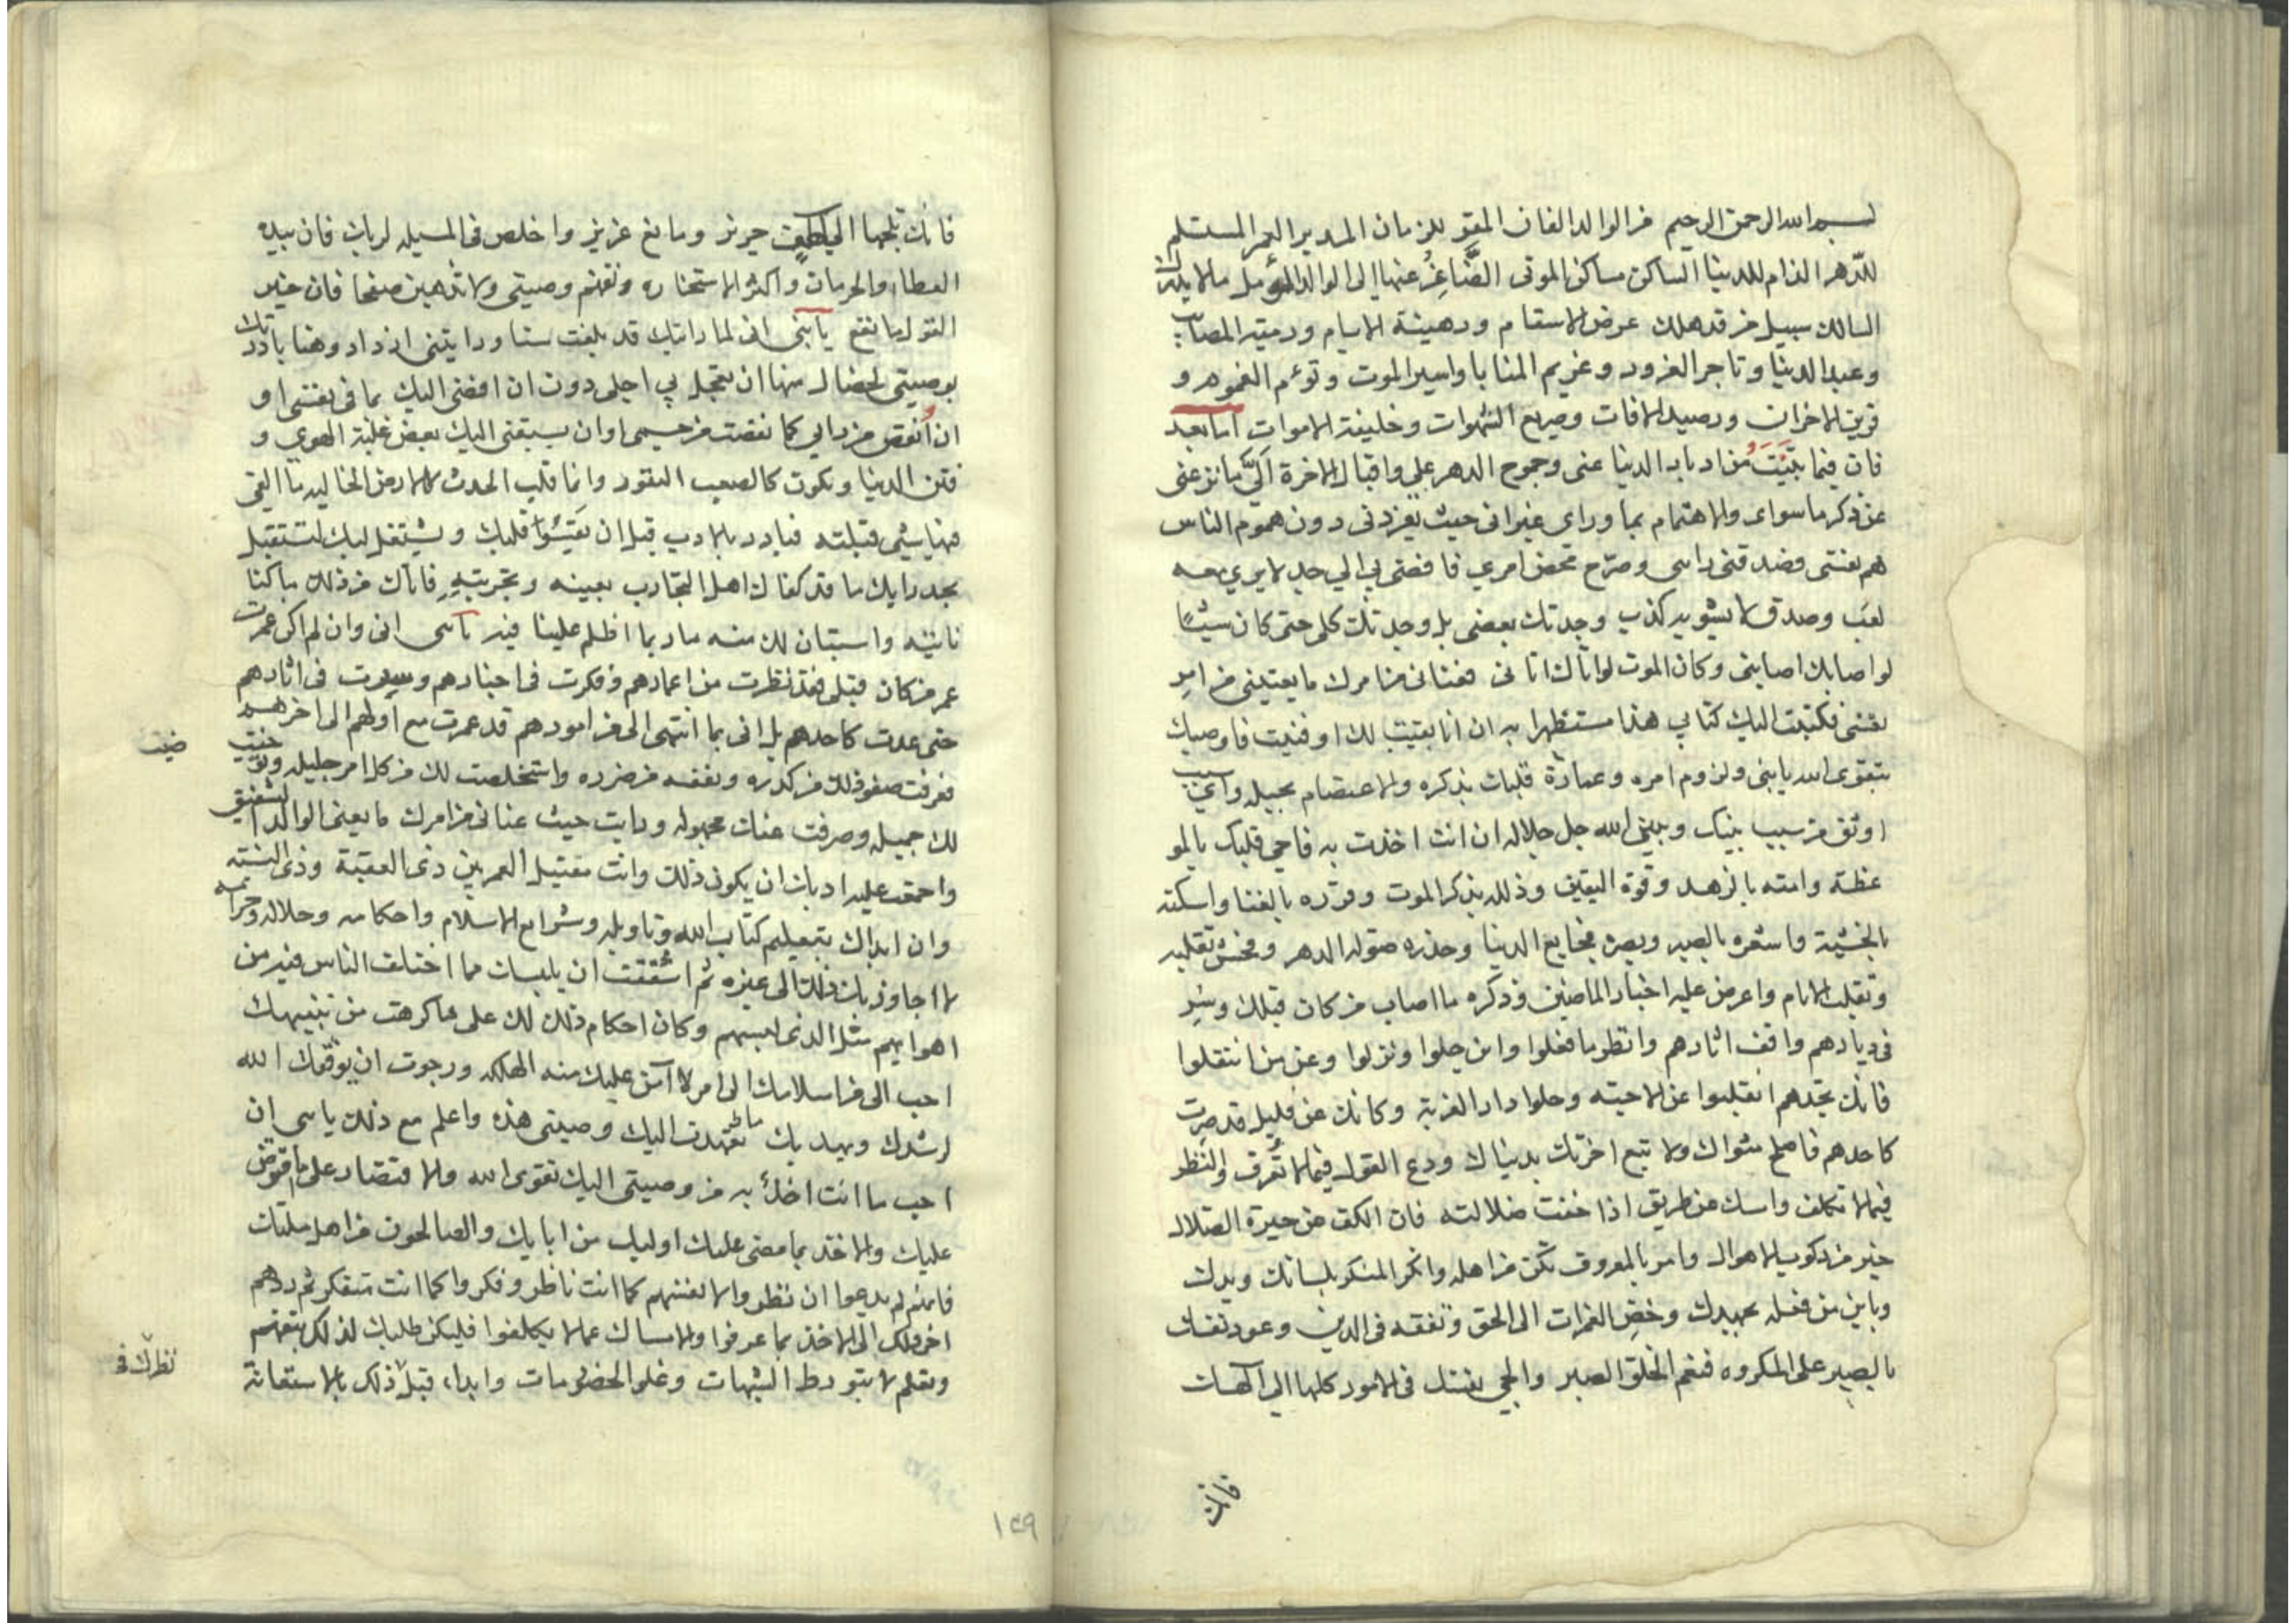 بسم الله الرحمن الرحيم من الوالد الفان المقر للزمان المدبر العمر المستسلم
للدهر الذام للدنيا الساكن مساكن الموتى الضَّاعِنُ عنها الى الوالد المؤمل ما لا يدرك
السالك سبيل من قد هلك عرض الاسقام ورهينة الايام ورمية المصائب
وعبد الدنيا وتاجر الغرور وغريم المنايا واسير الموت وتوءم الغموم و
قرين الاحزان ورصيد الافات وصريع الشهوات وخليفة الاموات اما بعد
فان فيما بيّنت من ادبار الدنيا عنى وجموح الدهر على واقبال الاخرة الىّ ما نزعنى
عن ذكر ما سواى والاهتمام بما وراى غير انى حيث تفرد نى دون هموم الناس
هم نفسى فصدقنى راسى وصرّح محض امرى فافضى بى الى جد لا يرى معه
لعب وصدق لا يشوبه كذب وجدتك بعضى بل وجدتك كلى حتى كان شيئًا
لو اصابك اصابنى وكان الموت لو اتاك اتانى فعنانى من امرك ما يعنينى من امر
نفسى فكتبت اليك كتابى هذا مستظهرا به ان انا بقيت لك او فنيت فاوصيك
بتقوى الله يا بنى ولزوم امره وعمارة قلبك بذكره والاعتصام بحبله واى سبب
اوثق من سبب بينك وبين الله جل جلاله ان انت اخذت به فاحى قلبك بالمو
عظة وامته بالزهد وقوة اليقين وذلله بذكر الموت وقرّره بالفنا واسكنه
بالخشية واشعره بالصبر وبصره فجايع الدنيا وحذره صولة الدهر وفحش تقلبه
وتقلب الايام واعرض عليه اخبار الماضين وذكره ما اصاب من كان قبلك وسِر
فى ديارهم واقف اثارهم وانظر ما فعلوا واين حلوا ونزلوا وعن من انتقلوا
فانك تجدهم انقلبوا عن الاحبة وحلوا دار الغربة وكانك عن قليل قد صرت
كاحدهم فاصلح مثواك ولا تبع اخرتك بدنياك ودع القول فيما لا تعرف والنظر
فيما لا تكلف وامسك عن طريق اذا خفت ضلالته فان الكف عن حيرة الضلال
خير من ركوب الاهوال وامر بالمعروف تكن من اهله وانكر المنكر بلسانك ويدك
وباين من فعله بجهدك وخض الغمرات الى الحق وتفقه فى الدين وعود نفسك
بالصبر على المكروه فنعم الخلق الصبر والجى نفسك فى الامور كلها الى الهك
فانك
فانك تلجها الى كهف حريز ومانع عزيز واخلص فى المسيله لربك فان بيده
العطا والحرمان واكثر الاستخاره وتفهم وصيتى ولا تذهبن صفحا فان خير
القول ما نفع يا بنى انى لما رايتك قد بلغت سنا ورايتنى ازداد وهنا بادرتك
بوصيتى لخصال منها ان يعجل بى اجلى دون ان افضى اليك بما فى نفسى او
ان اُنقص من رايى كما نقصت من جسمى او ان يسبقنى اليك بعض غلبة الهوى و
فتن الدنيا وتكون كالصعب النفور وانما قلب الحدث كالارض الخاليه ما القى
فيها شيى قبلته فبادر بالادب قبل ان يَقسُوا قلبك ويشتغل لبك لتستقبل
بجد رايك ما قد كفاك اهل التجارب بعينه وتجربتهِ فاتاك من ذلك ما كنا
ناتيه واستبان لك منه ما ربما اظلم علينا فيه يا بنى انى وان لم اكن عمرت
عمر من كان قبلى فقد نظرت من اعمارهم وفكرت فى اخبارهم وسرت فى اثارهم
حتى عدت كاحدهم بل انى بما انتهى الى من امورهم قد عمرت مع اولهم الى اخرهم
فعرفت صفو ذلك من كدره ونفعه من ضرره واستخلصت لك من كل امر جليله وتوخيت
خيت
لك جميله وصرفت عنك مجهوله ورايت حيث عنانى من امرك ما يعنى الوالد الشفيق
واجمعت عليه ادبك ان يكون ذلك وانت مقتبل العمر بين ذى العقبة وذى النسبة
وان ابداك بتعليم كتاب الله وتاويله وشرايع الاسلام واحكامه وحلاله وحرامه
لا اجاوز بك ذلك الى غيره ثم اشفقت ان يلبسك مما اختلف الناس فيه من
اهوايهم مثل الذى لبسهم وكان احكام ذلك لك على ما كرهت من تنبيهك
احب الى من اسلامك الى امر لا آمن عليك منه الهلكه ورجوت ان يوفقك الله
لرشدك ويهديك فعهدت اليك وصيتى هذه واعلم مع ذلك يا بنى ان
احب ما انت اخذُ به من وصيتى اليك تقوى الله والاقتصار على ما فرض
عليك والاخذ بما مضى عليه اوليك من ابايك والصالحون من اهل ملتك
فانهم لم يدعوا ان نظروا لانفسهم كما انت ناظر وفكروا كما انت متفكر ثم ردهم
اخر ذلك الى الاخذ بما عرفوا والامساك عما لا يكلفوا فليكن طلبك لذلك بتفهم
وتعلم لا بتورط الشبهات وغلو الخصومات وابدا قبل ذلك بالاستعانة
نظرك فى
١٤٩